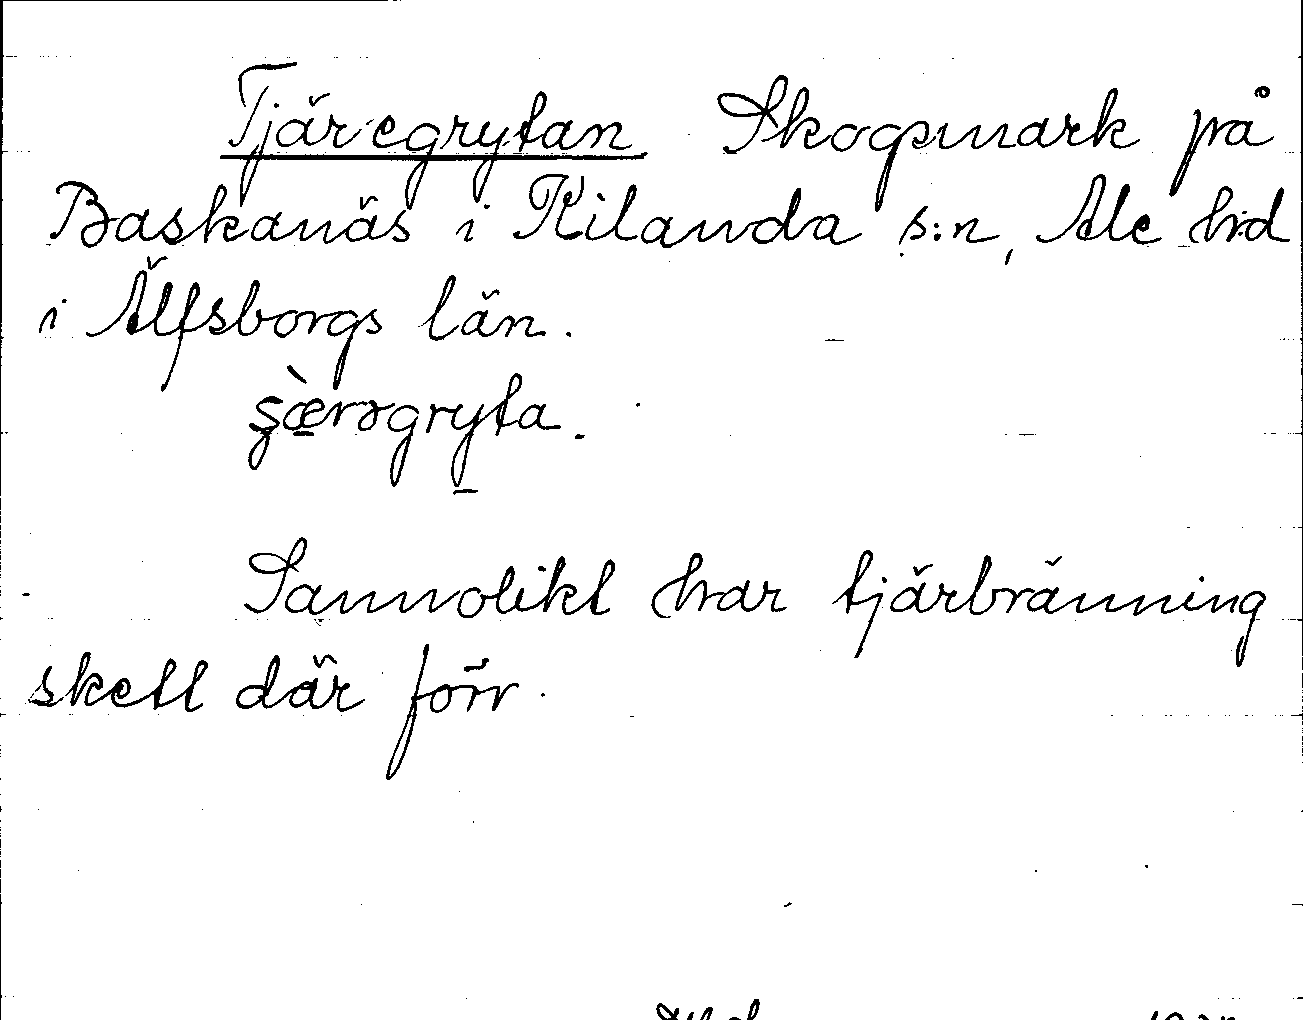 Tjäregrytan Skogsmark på
Baskanäs i Kilanda s:n, Ale hd
i Älfsborgs län.
ʂæ̀rəgryta.
Sannolikt har tjärbränning
skett där förr.